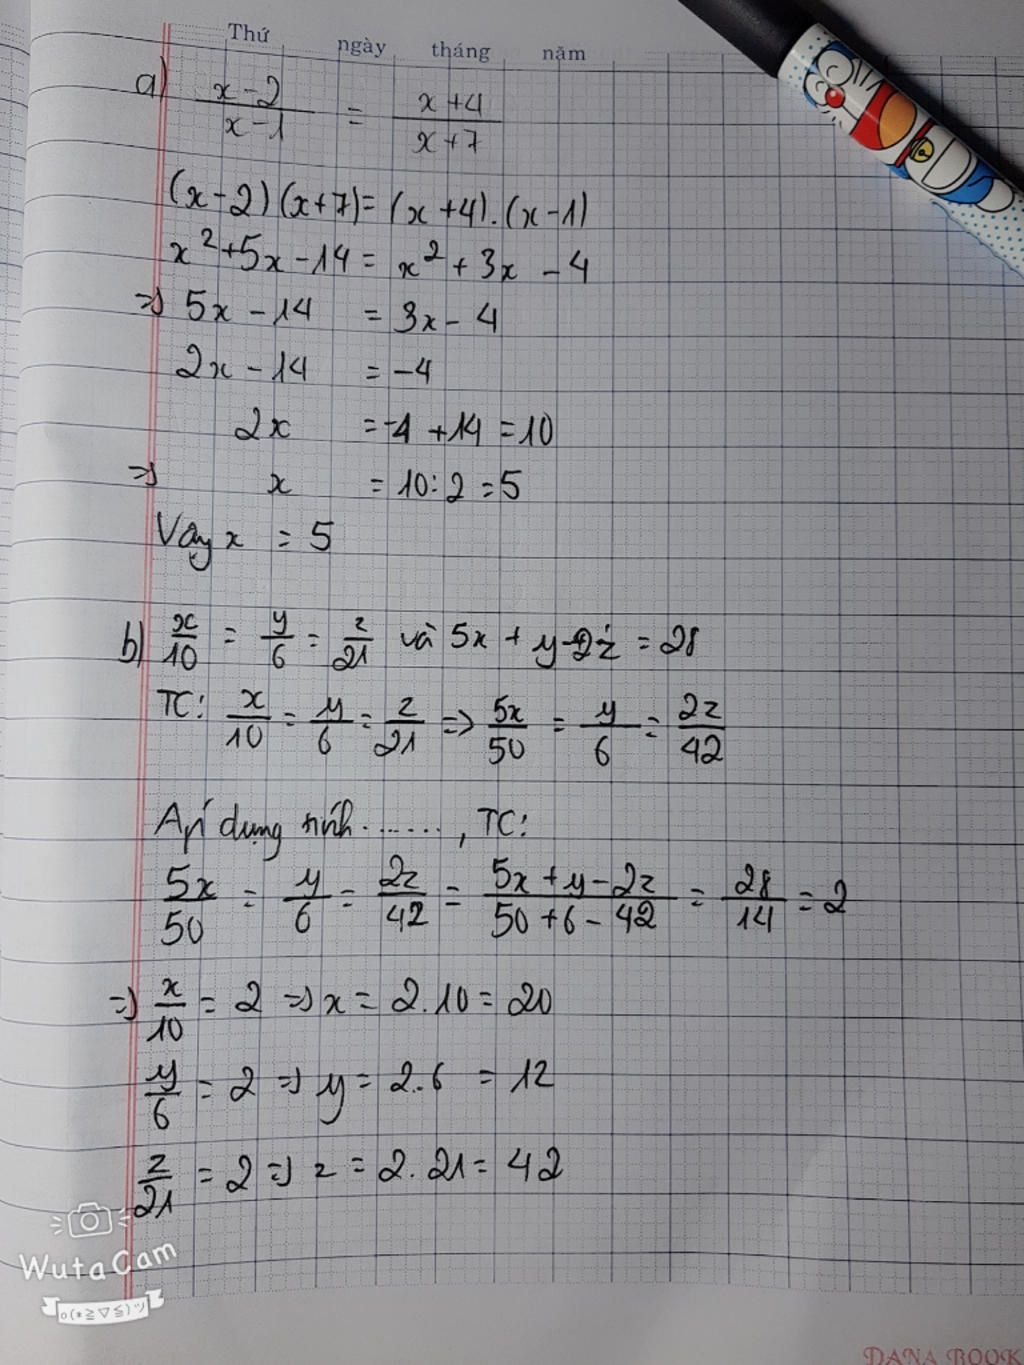 Thứ ngày tháng năm
a) (x-2)/(x-1) = (x+4)/(x+7)
(x-2)(x+7)=(x+4).(x-1)
x²+5x-14= x²+3x-4
=> 5x-14 = 3x-4
2x-14 = -4
2x = -4+14 =10
=> x = 10:2 =5
Vậy x = 5
b) x/10 = y/6 = z/21 và 5x+y-2z = 28
TC: x/10 = y/6 = z/21 => 5x/50 = y/6 = 2z/42
Áp dụng tính ......., TC:
5x/50 = y/6 = 2z/42 = (5x+y-2z)/(50+6-42) = 28/14 = 2
=> x/10 = 2 => x = 2.10 = 20
y/6 = 2 => y = 2.6 = 12
z/21 = 2 => z = 2.21 = 42
WutaCam
o(*≧▽≦)ツ
DANA BOOK